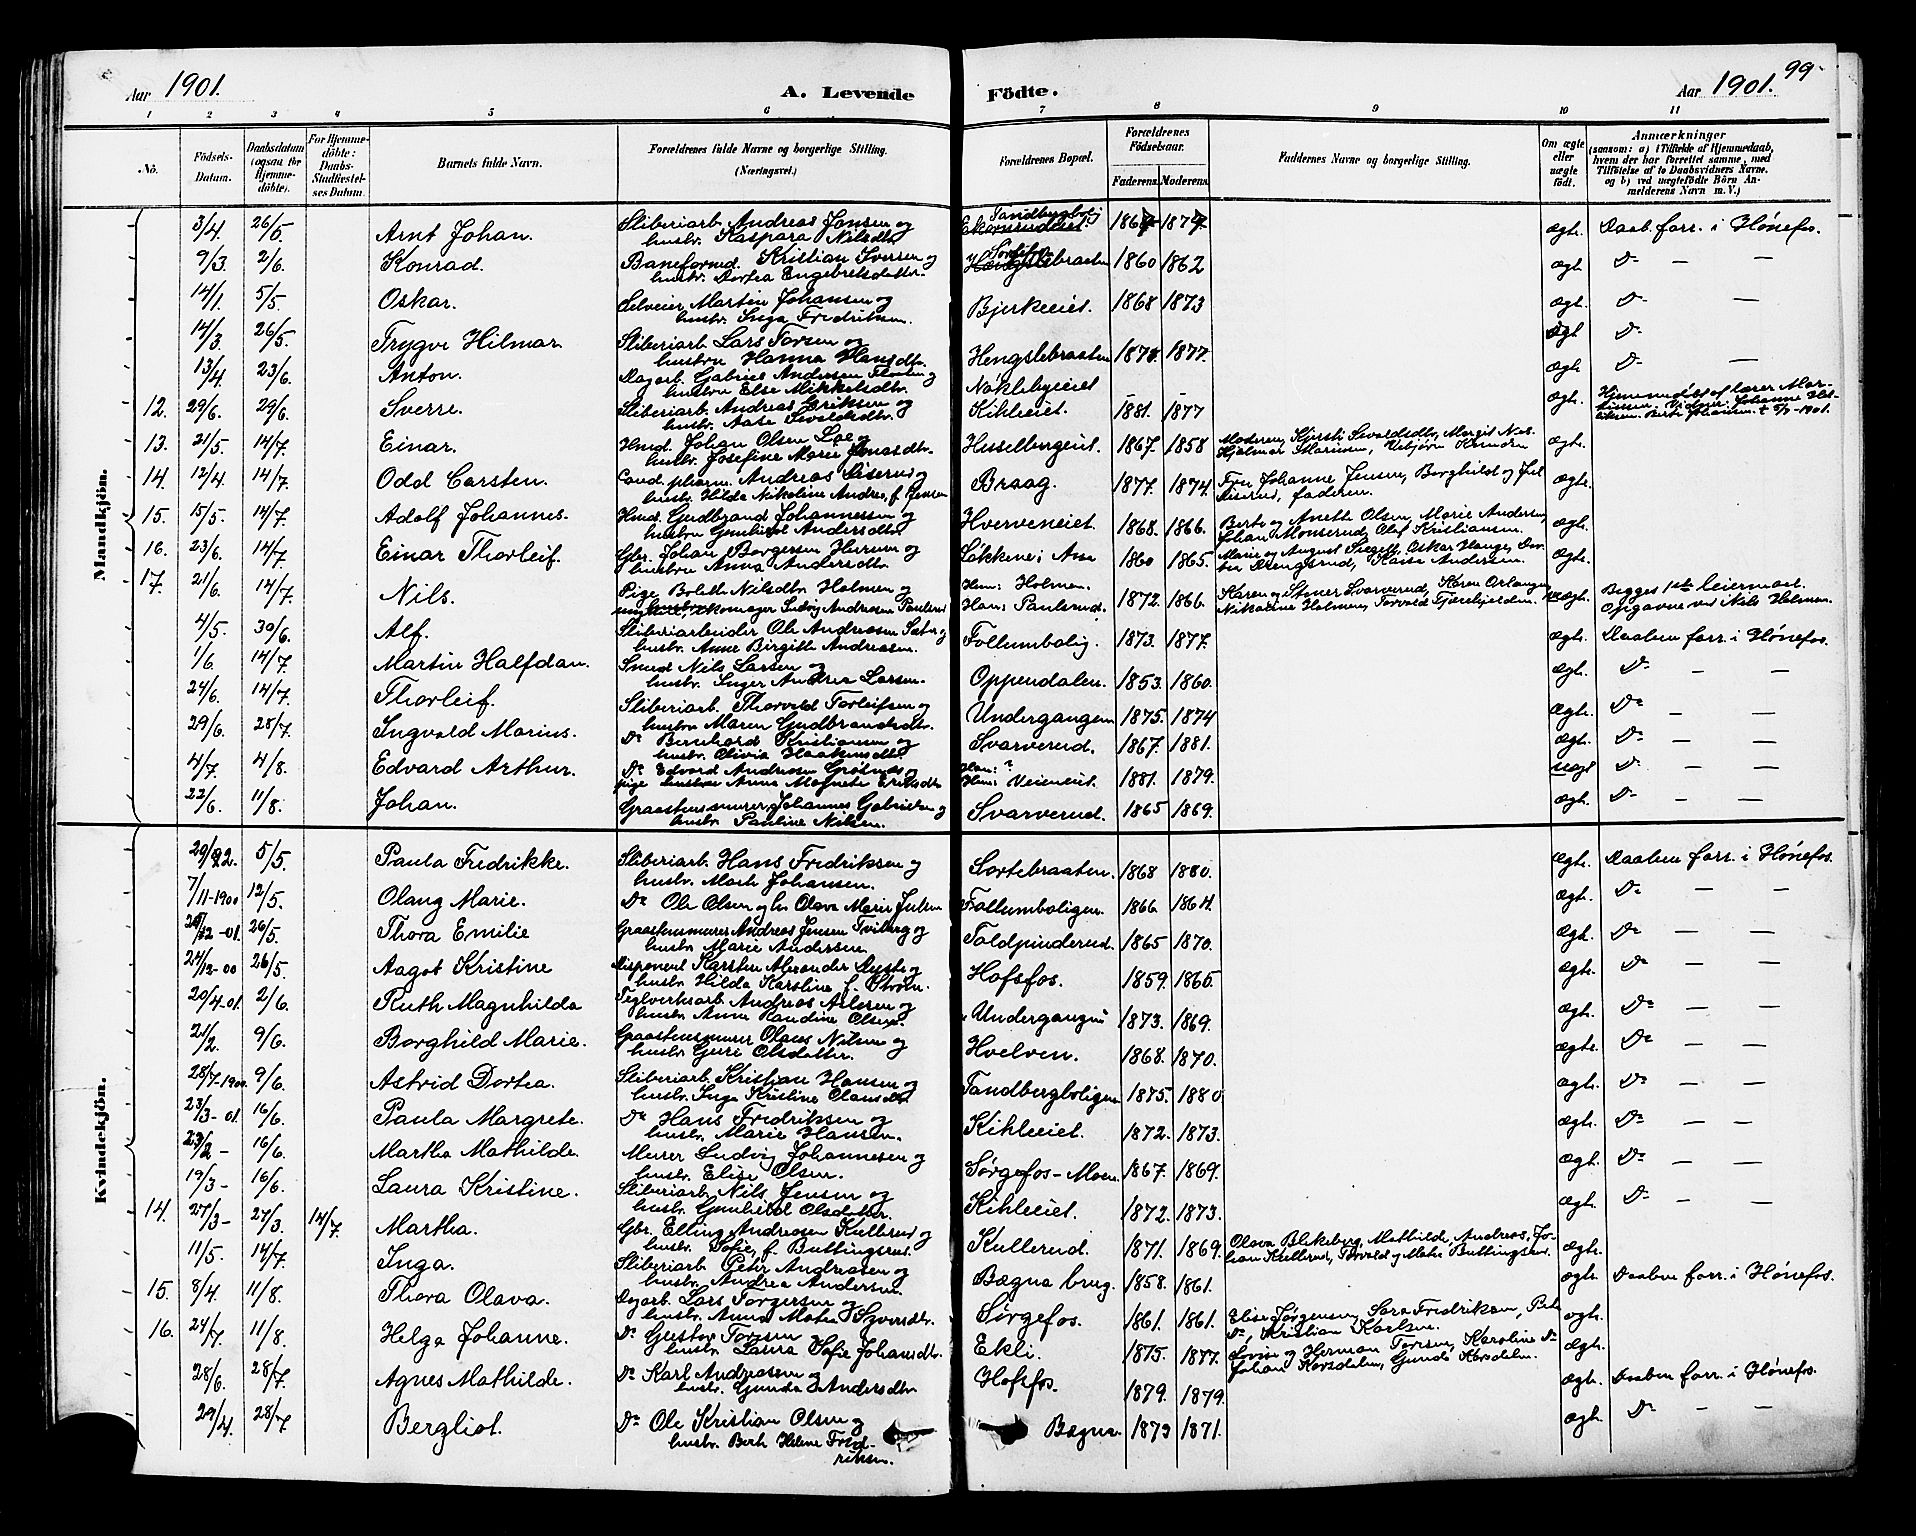 Aar 1901.
A. Levende Födte.
Aar 1901. 99
1 2 3 4 5 6 7 8 9 10 11
No.
Födsels-Datum.
Daabsdatum (ogsaa for Hjemme-döbte).
For Hjemme-döbte: Daabs-Stadfæstel-ses Datum.
Barnets fulde Navn.
Forældrenes fulde Navne og borgerlige Stilling. (Næringsvei.)
Forældrenes Bopæl.
Forældrenes Födselsaar.
Faderens. Moderens.
Faddernes Navne og borgerlige Stilling.
Om ægte eller uægte födt.
Anmærkninger
(saasom: a) i Tilfælde af Hjemmedaab, hvem der har forrettet samme, med Tilföielse af to Daabsvidners Navne, og b) ved uægtefödte Börn An-melderens Navn m. V.)
Mandkjön.
3/4 26/5 Arnt Johan. Sliberiarb. Andreas Jansen og hustr. Kaspara Nilsdtr. ægte. Daab. forr. i Hönefos.
9/3 2/6. Konrad. Baneformd. Kristian Iversen og hustr. Dortea Engebretsdatter. 1860 1862 ægte. Do — —
14/1 5/5. Oskar. Selveier Martin Johansen og hustr. Inga Fredriksen. Bjerkeeiet. 1868 1873 ægte. Do —
14/3. 26/5. Trygve Hilmar Sliberiarb. Lars Torsen og hustru Hanna Hansdtr. Hengslebraaten 1877. ægt Do
13/4. 23/6. Anton. Dagarb. Gabriel Andersen og hustru Else Mikkelsdtr. Nöklebyeiet ægte. Do —
12. 29/6. 29/6. Sverre. Sliberiarb. Andreas Eriksen og hustr. Aase Sevaldsdtr. Kihleeiet. 1881. 1877 ægte. Hjemmedöbt af lærer Mar-
13. 21/5. 14/7. Einar. Hmd. Johan Olsen Löe og hustr. Josefine Marie Jonasdtr. Hesselbergeiet. 1867. 1858 Moderen, Kjersti Sevaldsdtr, Margit Nes. Hjalmar ægte.
14. 12/4. 14/7. Odd Carsten. Cand. pharm. Andreas og hustr. Hilda Nikoline Andrea, f. Jensen Braag. 1877. 1874. Fru Johanne Jensen, Borghild og faderen. ægte.
15. 15/5. 14/7. Adolf Johannes. Hmd. Gudbrand Johannessen og hustru Gunhild Andersdtr. Hverveneiet. 1868. 1866. Berte og Anette Olsen, Marie Andersen, Johan Monserud, Olaf Kristiansen. ægte.
16. 23/6. 14/7. Einar Thorleif. Gbr. Johan Borgersen og hustru Anna Andersdtr. Løkkene i Aas 1860 1865. Marie og August Oskar Hauge, Hans Andersen. ægte.
17. 21/6. 14/7. Nils. Pige Boleth Nilsdtr. Holmen og skomager Ludvig Andreassen Paulerud Hun: Holmen. Han: Paulerud. 1872. 1866. Karen og Steiner Svarverud, Nikoline Holmen, uægte. Begges 1ste leiermaal. Opgavne ved Nils Holmen.
4/5. 30/6. Alf. Sliberiarbeider Ole Andreasen og hustr. Anne Birgitte Andreasen. Follumbolig. 1873. 1877. ægte. Daaben forr. i Hönefos.
1/6. 14/7. Martin Halfdan. Smed Nils Larsen og hustr. Inger Andrea Larsen. Oppendalen. 1853. 1860. ægte. Do — —
24/6. 14/7. Thorleif. Sliberiarb. Thorvald Torleifsen og hustr. Maren Gudbrandsdtr. Undergangen 1875. 1874 ægte. Do — —
29/6. 28/7. Ingvald Marius. Do Bernhard Kristiansen og hustr. Olivia Haakensdtr. Svarverud. 1867. 1881. ægte. Do — —
4/7. 4/8. Edvard Arthur. Do Edvard Andreasen og pige Anna Magnete Eriksdtr. Han: ? Hun: Veieneiet. 1881. 1879. uægt Do — —
22/6. 11/8. Johan. Graastensmurer Johannes Gabrielsen og hustr. Pauline Nilsen. Svarverud. 1865 1869. ægte. Do — —
Kvindekjön.
5/5. Paula Fredrikke. Sliberiarb. Hans Fredriksen og hustr. Marte Johansen. Sortebraaten. 1868 1880. ægte. Daaben forr. i Hönefos.
7/11-1900 12/5. Olaug Marie. Do Ole Olsen og hu Olava Marie Julsen Follumboligen. 1866. 1864. ægte. Do — —
26/5. Thora Emilie Graastensmurer Andreas Jensen Tviberg og hustr. Marie Andersen. Toldpinderud. 1865 1870. ægte. Do — —
24/12-00 26/5. Aagot Kristine Disponent Karsten Alexander og hustr. Hilda Karoline f. Strøm. Hofsfos. 1859. 1865. ægte. Do — —
20/4-01. 2/6. Ruth Magnhilda Teglverksarb. Andreas Aslesen og hustr. Anne Randine Olsen. Undergangen 1873. 1869. ægte. Do — —
21/2. 9/6. Borghild Marie. Graastensmurer Olaus Nilsen og hustr. Gerri Olsdatter. Hvelven. 1868. 1870. ægte. Do — —
28/7-1900. 9/6. Astrid Dortea. Sliberiarb. Kristian Hansen og hustr. Inga Kristine Olausdtr. Tandbergboligen 1875. 1880 ægte. Do — —
23/3-01. 16/6. Paula Margrete. Do Hans Fredriksen og hustr. Marie Hansen. Kihleeiet. 1872. 1873. ægte. Do — —
23/2 - 16/6. Martha Mathilde. Murer Ludvig Johannesen og hustr. Elise Olsen. Sørgefos-Moen 1867. 1869. ægte. Do — —
19/3 - 16/6. Laura Kristine. Sliberiarb. Nils Jensen og hustr. Gunhild Olsdatter. Kihleeiet. 1872. 1873. ægte. Do — —
14. 27/3- 27/3. 14/7. Martha. Gbr. Elling Andreasen Kullerud og hustr. Sofie, f. Buttingsrud. Kullerud. 1871. 1869. Olava Blekeberg, Mathilde, Andreas, Jo-han Kullerud, Torvald og Mate Buttingsrud. ægte.
11/5. 14/7. Inga. Sliberiarb. Peter Andreasen og hustr. Andrea Andersen. Bægna brug. 1858. 1861. ægte. Daaben forr. i Hönefos.
15. 8/4. 11/8. Thora Olava. Dagarb. Lars Torgersen og hustr. Anna Mathea Syversdtr. Sørgefos. 1861. 1861. Elise Jørgensen, Sara Fredriksen, Do, Kristian Karlsen. ægte.
16. 24/7. 11/8. Helga Johanne. Do Gustav Torsen og hustr. Laura Sofie Johansdtr. Ekli. 1875. 1877. Lovise og Herman Torsen, Karoline Do Johan Korsdalen, Gunda Korsdalen. ægte.
28/6. 28/7. Agnes Mathilde. Do Karl Andreasen og hustr. Gunda Andersdtr. Hofsfos. 1879. 1879. ægte. Daaben forr. i Hönefos.
29/4. 28/7. Bergliot. Do Ole Kristian Olsen og hustr. Berte Helene Fred-riksen. Bægna. 1873 1871. ægte. Do — —